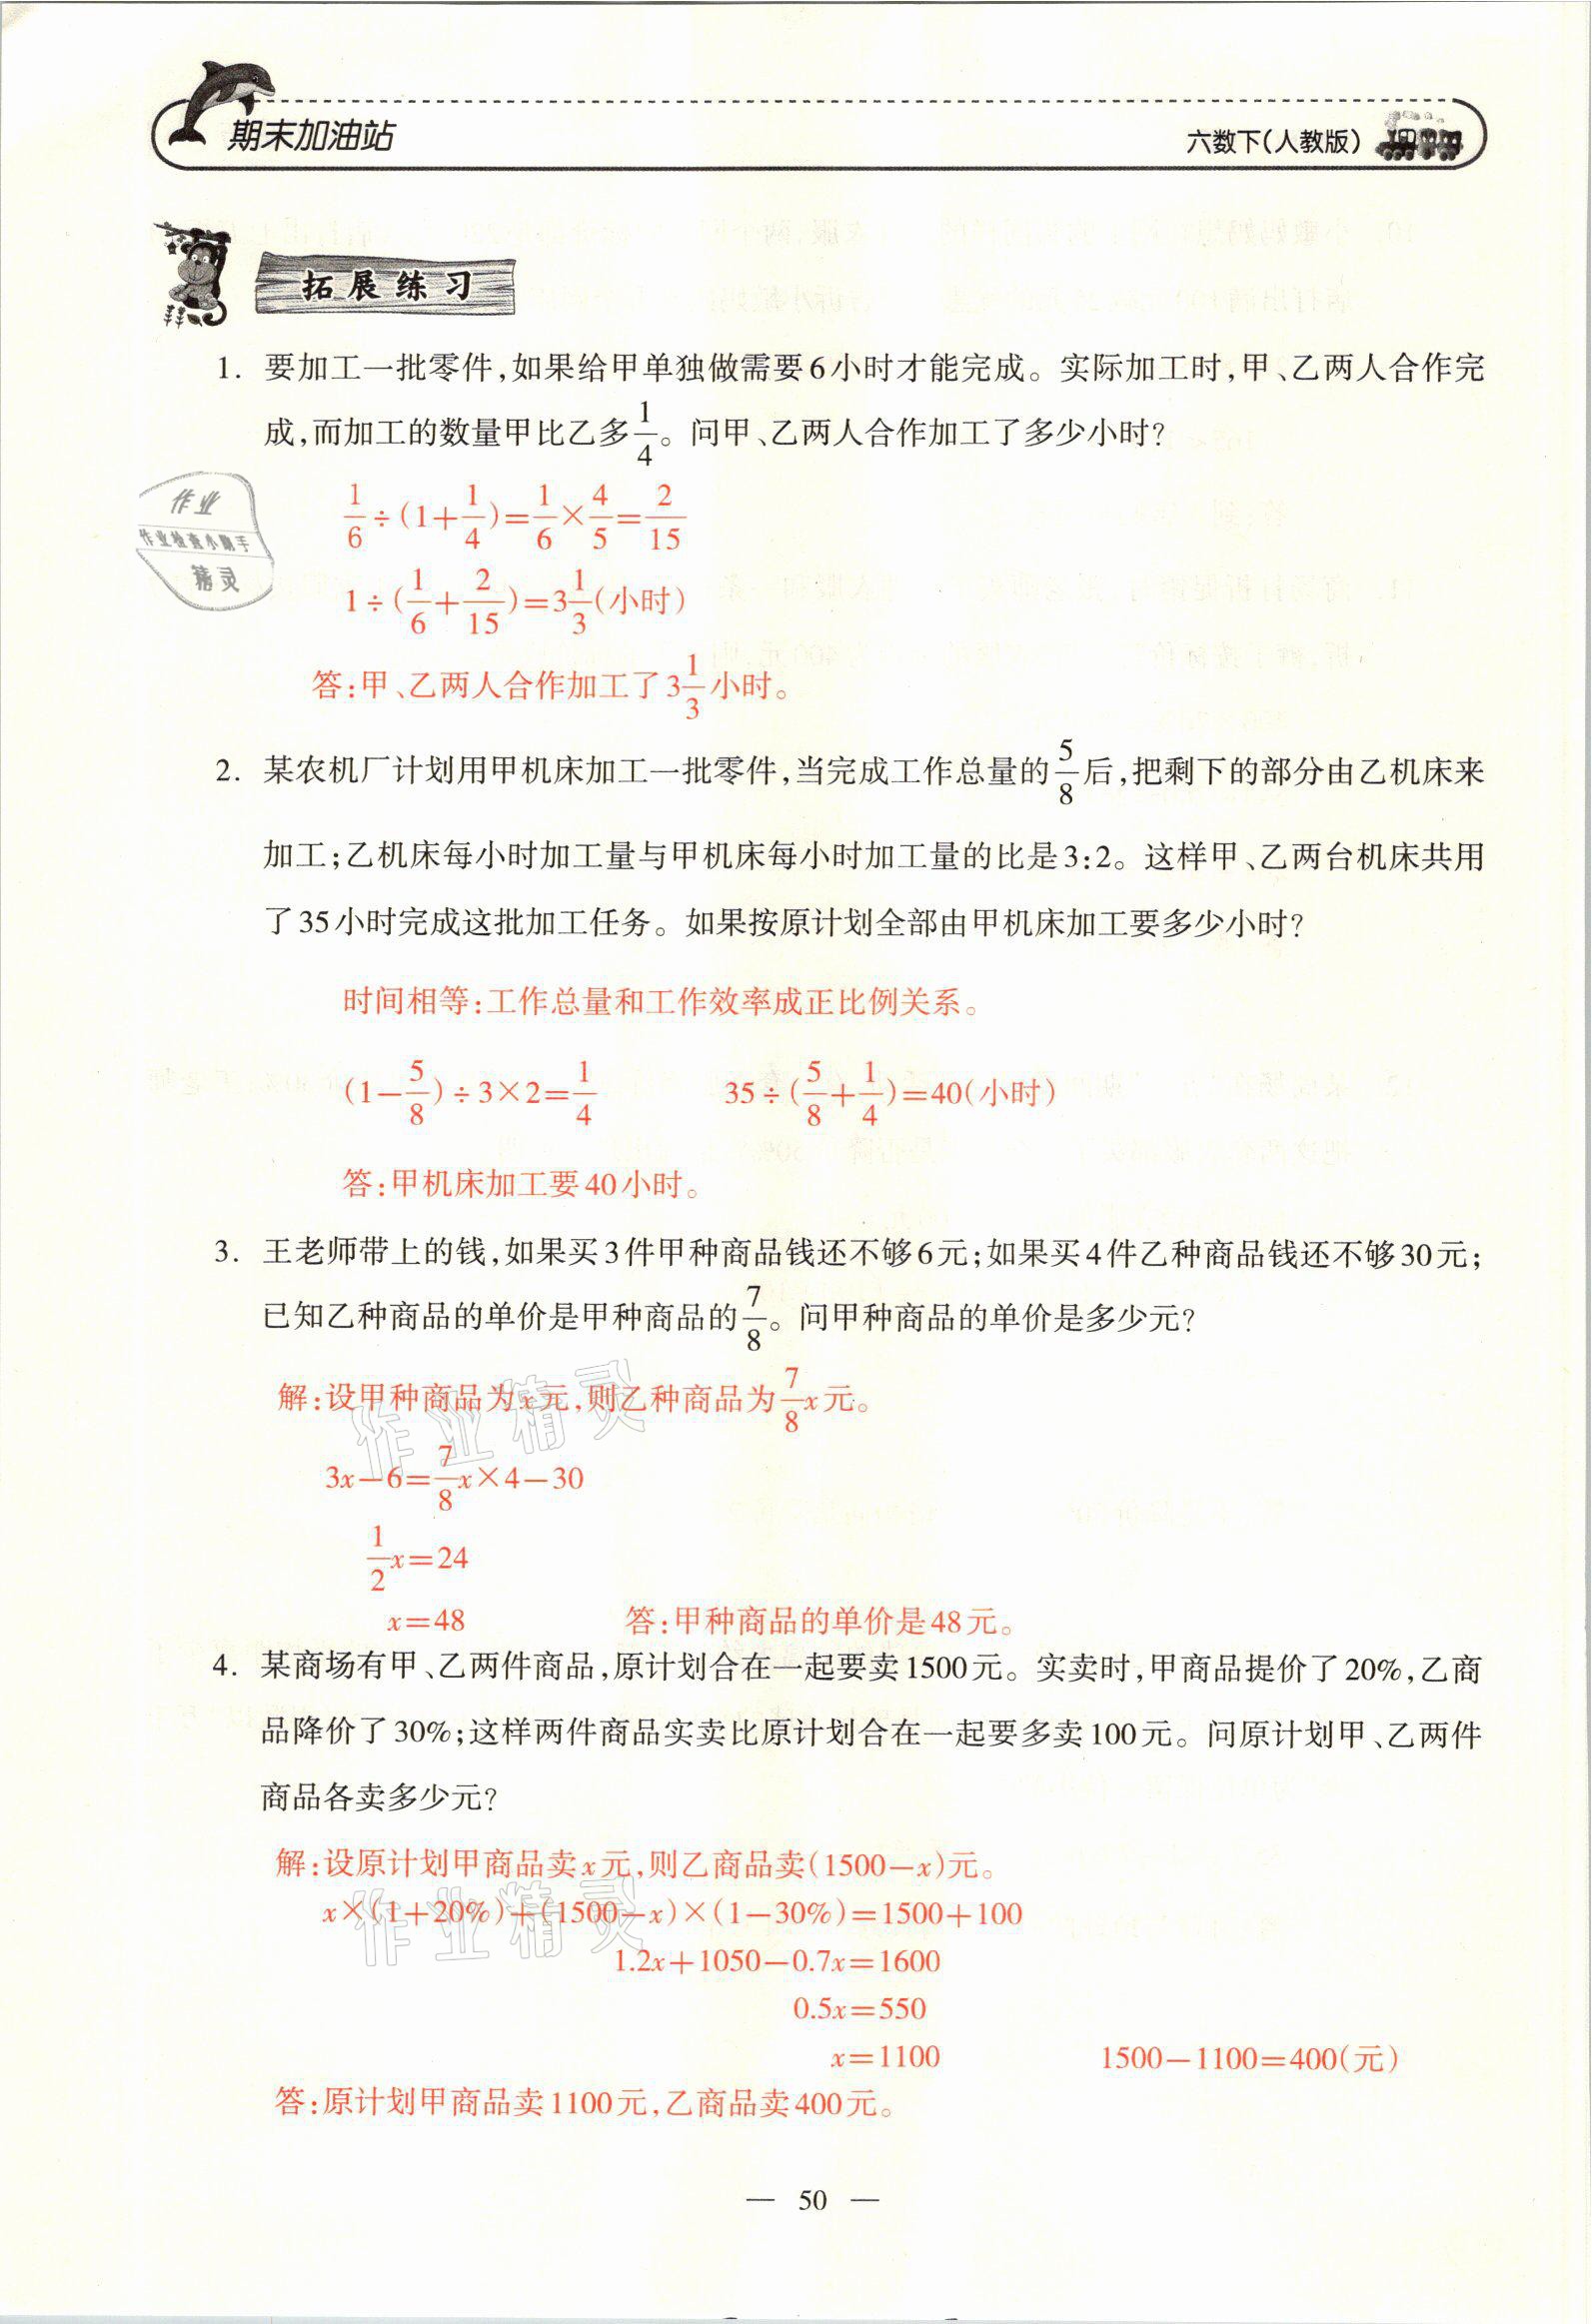 期末加油站
六数下(人教版)
拓展练习
1. 要加工一批零件,如果给甲单独做需要6小时才能完成。实际加工时,甲、乙两人合作完
成,而加工的数量甲比乙多1/4。问甲、乙两人合作加工了多少小时?
1/6÷(1+1/4)=1/6×4/5=2/15
作业
作业检查小助手
精灵
1÷(1/6+2/15)=3 1/3(小时)
答:甲、乙两人合作加工了3 1/3小时。
2. 某农机厂计划用甲机床加工一批零件,当完成工作总量的5/8后,把剩下的部分由乙机床来
加工;乙机床每小时加工量与甲机床每小时加工量的比是3:2。这样甲、乙两台机床共用
了35小时完成这批加工任务。如果按原计划全部由甲机床加工要多少小时?
时间相等:工作总量和工作效率成正比例关系。
(1-5/8)÷3×2=1/4 35÷(5/8+1/4)=40(小时)
答:甲机床加工要40小时。
3. 王老师带上的钱,如果买3件甲种商品钱还不够6元;如果买4件乙种商品钱还不够30元;
已知乙种商品的单价是甲种商品的7/8。问甲种商品的单价是多少元?
解:设甲种商品为x元,则乙种商品为7/8x元。
作业精灵
3x-6=7/8x×4-30
1/2x=24
x=48 答:甲种商品的单价是48元。
4. 某商场有甲、乙两件商品,原计划合在一起要卖1500元。实卖时,甲商品提价了20%,乙商
品降价了30%;这样两件商品实卖比原计划合在一起要多卖100元。问原计划甲、乙两件
商品各卖多少元?
解:设原计划甲商品卖x元,则乙商品卖(1500-x)元。
x×(1+20%)+(1500-x)×(1-30%)=1500+100
作业精灵
1.2x+1050-0.7x=1600
0.5x=550
x=1100 1500-1100=400(元)
答:原计划甲商品卖1100元,乙商品卖400元。
— 50 —